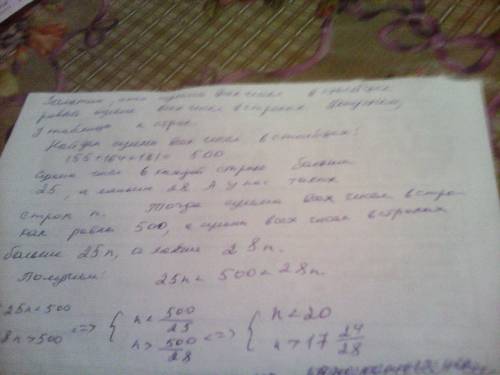 Заметим, что сумма всех чисел в столбцах
равна сумме всех чисел в строках. Допустим,
у таблицы n строк.
Найдём сумму всех чисел в столбцах:
= 500
Сумма чисел в каждой строке больше
25, а меньше 28. А у нас таких
строк n. Тогда сумма всех чисел в стро-
ках равна 500, а сумма всех чисел в строках
больше 25n, а меньше 28n.
Получаем: 25n < 500 < 28n.
25n < 500
8n > 500 <=> { n < 500/25 n > 500/28 <=> { n < 20 n > 17 24/28